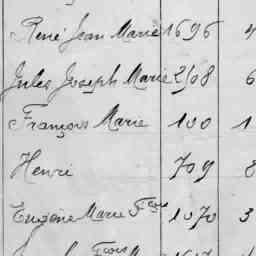 René Jean Marie 1696 4
Jules Joseph Marie 2508 6
François Marie 100 1
Henri 709 8
Eugène Marie Fçois 1070 3
Fçois